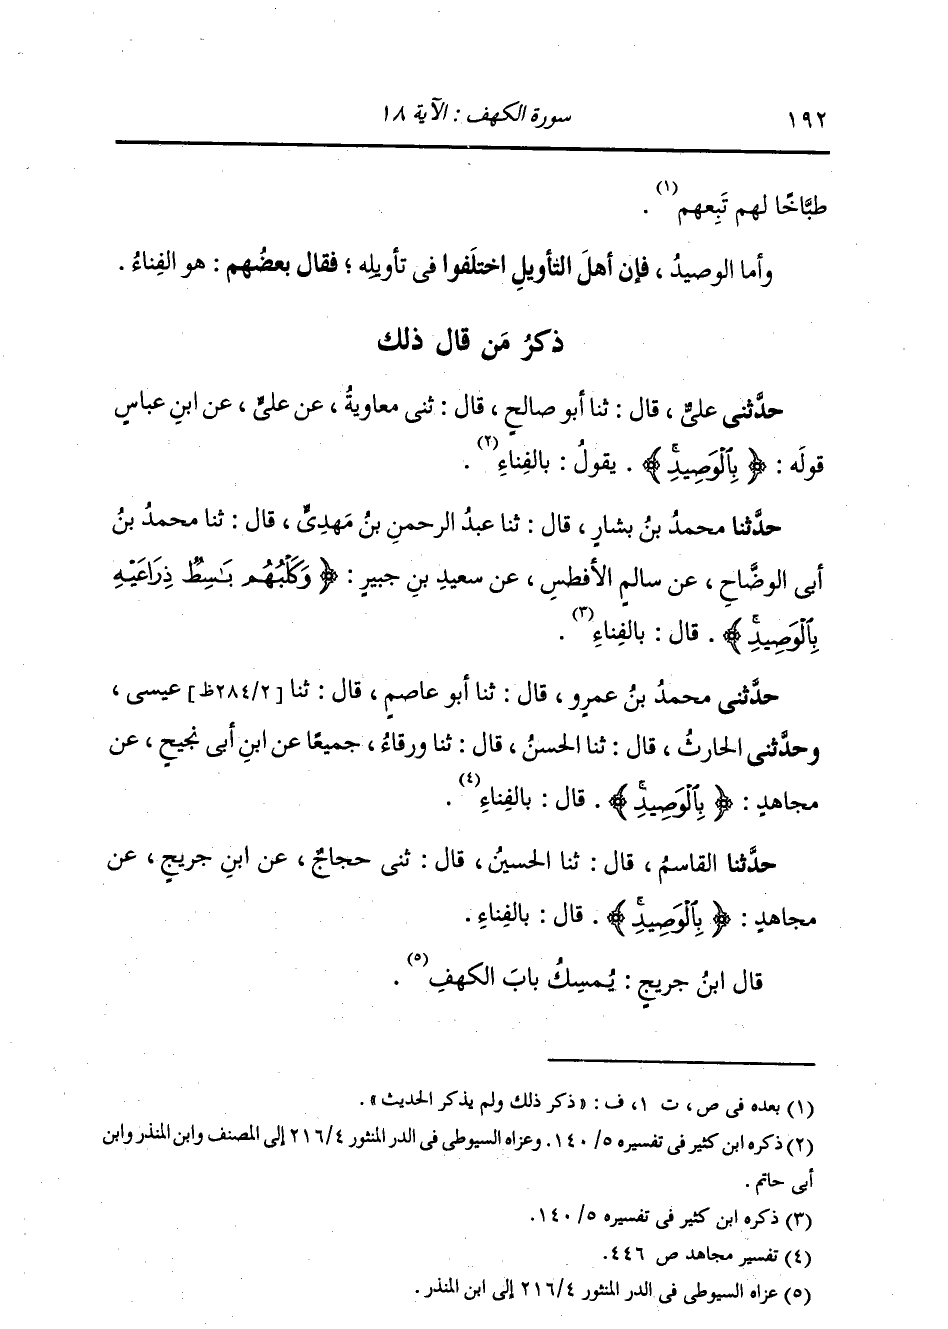 ١٩٢ سورة الكهف : الآية ١٨
طبَّاخًا لهم تَبِعهم(١) .
وأما الوصيدُ ، فإن أهلَ التأويلِ اختلَفوا فى تأويلِه ؛ فقال بعضُهم : هو الفِناءُ .
ذكرُ مَن قال ذلك
حدَّثنى علىٌّ ، قال : ثنا أبو صالحٍ ، قال : ثنى معاويةُ ، عن علىٍّ ، عن ابنِ عباسٍ
قولَه : ﴿ بِٱلْوَصِيدِۚ ﴾ . يقولُ : بالفِناءِ(٢) .
حدَّثنا محمدُ بنُ بشارٍ ، قال : ثنا عبدُ الرحمنِ بنُ مَهدىٍّ ، قال : ثنا محمدُ بنُ
أبى الوضَّاحِ ، عن سالمٍ الأفطسِ ، عن سعيدِ بنِ جبيرٍ : ﴿ وَكَلْبُهُم بَٰسِطٌ ذِرَاعَيْهِ
بِٱلْوَصِيدِۚ ﴾ . قال : بالفِناءِ(٣) .
حدَّثنى محمدُ بنُ عمرٍو ، قال : ثنا أبو عاصمٍ ، قال : ثنا [٢٨٤/٢ظ] عيسى ،
وحدَّثنى الحارثُ ، قال : ثنا الحسنُ ، قال : ثنا ورقاءُ ، جميعًا عن ابنِ أبى نجيحٍ ، عن
مجاهدٍ : ﴿ بِٱلْوَصِيدِۚ ﴾ . قال : بالفِناءِ(٤) .
حدَّثنا القاسمُ ، قال : ثنا الحسينُ ، قال : ثنى حجاجٌ ، عن ابنِ جريجٍ ، عن
مجاهدٍ : ﴿ بِٱلْوَصِيدِۚ ﴾ . قال : بالفِناءِ .
قال ابنُ جريجٍ : يُمسِكُ بابَ الكهفِ(٥) .
(١) بعده فى ص ، ت ١، ف : «ذكر ذلك ولم يذكر الحديث» .
(٢) ذكره ابن كثير فى تفسيره ٥/ ١٤٠. وعزاه السيوطى فى الدر المنثور ٢١٦/٤ إلى المصنف وابن المنذر وابن
أبى حاتم .
(٣) ذكره ابن كثير فى تفسيره ٥/ ١٤٠.
(٤) تفسير مجاهد ص ٤٤٦.
(٥) عزاه السيوطى فى الدر المنثور ٢١٦/٤ إلى ابن المنذر .